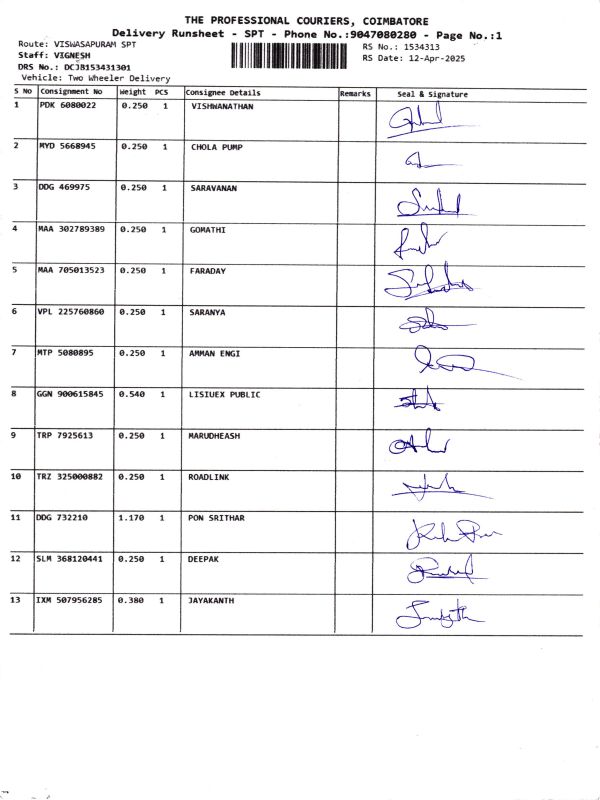 THE PROFESSIONAL COURIERS, COIMBATORE
Delivery Runsheet - SPT - Phone No.:9047080280 - Page No.:1
Route: VISWASAPURAM SPT RS No.: 1534313
Staff: VIGNESH RS Date: 12-Apr-2025
DRS No.: DCJ8153431301
Vehicle: Two Wheeler Delivery
S No Consignment No Weight PCS Consignee Details Remarks Seal & Signature
1 PDK 6080022 0.250 1 VISHWANATHAN
2 MYD 5668945 0.250 1 CHOLA PUMP
3 DDG 469975 0.250 1 SARAVANAN
4 MAA 302789389 0.250 1 GOMATHI
5 MAA 705013523 0.250 1 FARADAY
6 VPL 225760860 0.250 1 SARANYA
7 MTP 5080895 0.250 1 AMMAN ENGI
8 GGN 900615845 0.540 1 LISIUEX PUBLIC
9 TRP 7925613 0.250 1 MARUDHEASH
10 TRZ 325000882 0.250 1 ROADLINK
11 DDG 732210 1.170 1 PON SRITHAR
12 SLM 368120441 0.250 1 DEEPAK
13 IXM 507956285 0.380 1 JAYAKANTH